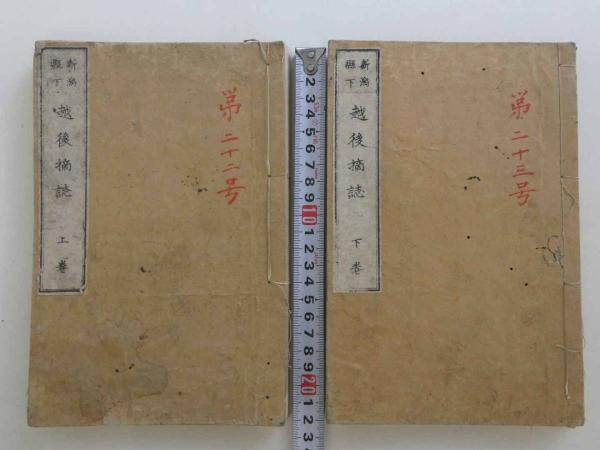 新潟
縣下
越後摘誌
上巻
第二十二号
新潟
縣下
越後摘誌
下巻
第二十三号
2 3 4 5 6 7 8 9 10 1 2 3 4 5 6 7 8 9 20 1 2 3